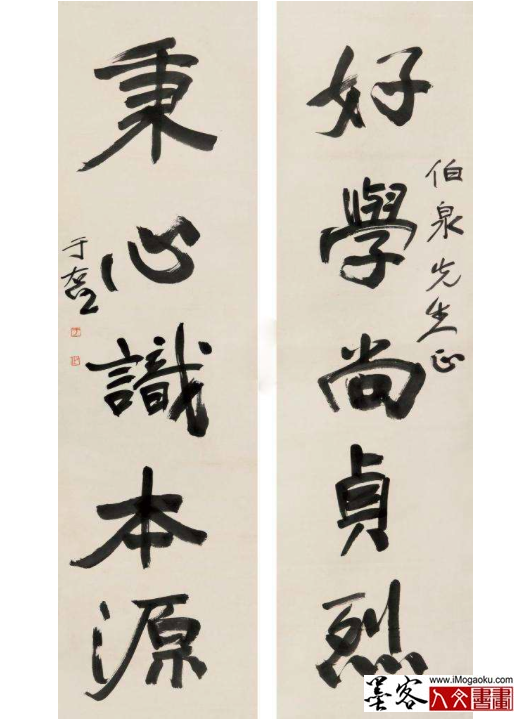 好學尚貞烈
伯泉先生正
秉心識本源
于右任
www.iMogaoku.com
墨客
人文書畫